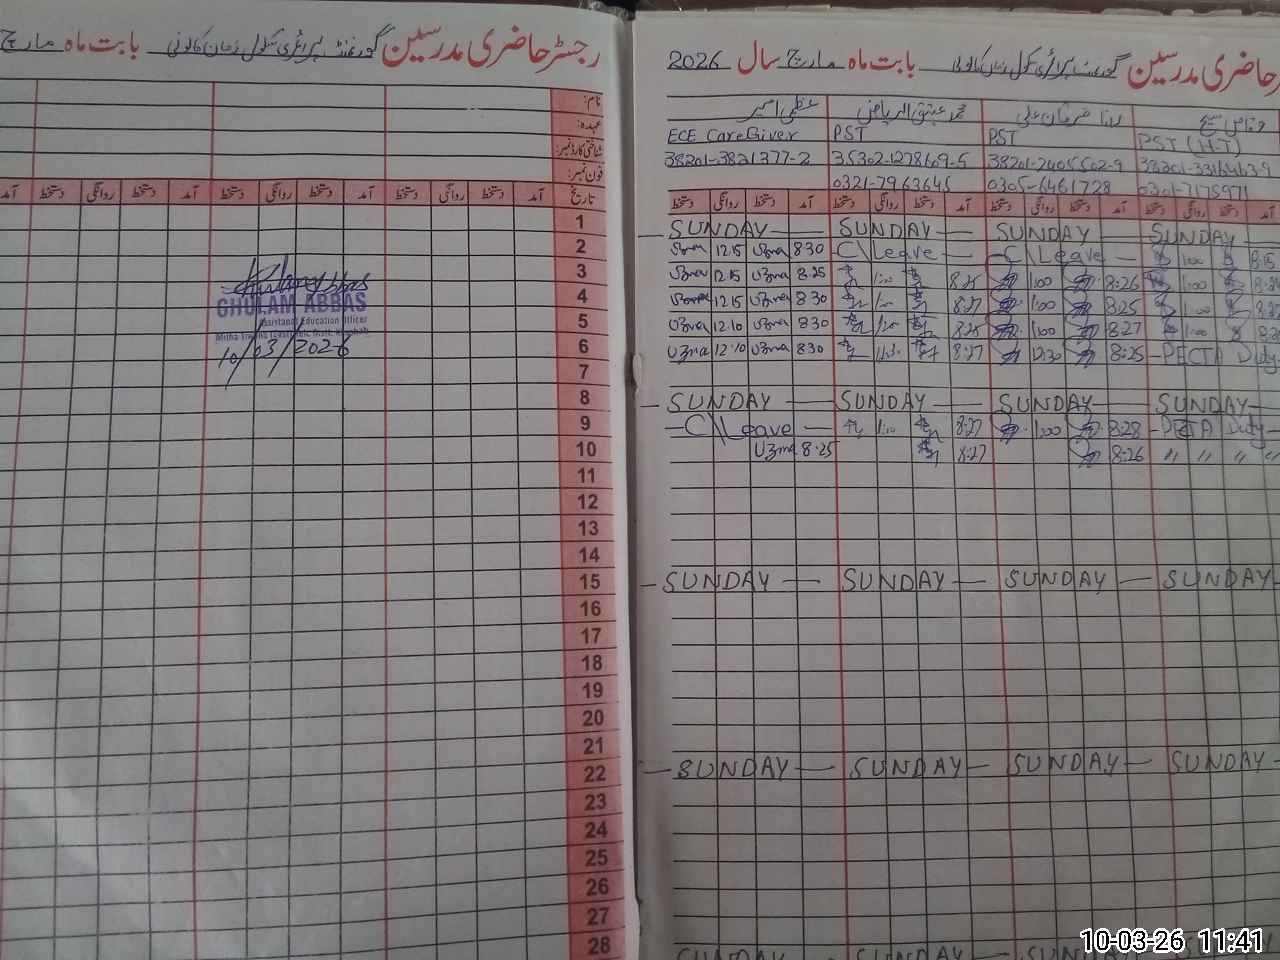 رجسٹر حاضری مدرسین گورنمنٹ پرائمری سکول زمان کالونی بابت ماہ مارچ
نام:
عہدہ:
شناختی کارڈ نمبر:
فون نمبر:
تاریخ آمد دستخط روانگی دستخط آمد دستخط روانگی دستخط آمد دستخط روانگی دستخط آمد
1
2
3
4
5
6
7
8
9
10
11
12
13
14
15
16
17
18
19
20
21
22
23
24
25
26
27
28
GHULAM ABBAS
Assistant Education Officer
10/03/2026
حاضری مدرسین گورنمنٹ پرائمری سکول زمان کالونی بابت ماہ مارچ سال 2026
عظمی امیر محمد عتیق الریاض رانا فرمان علی
ECE CareGiver PST PST PST (H-T)
38201-3821377-2 35302-1278609-5 38201-2405502-9
0321-7963645 0305-6461728 0301-7175971
آمد دستخط روانگی دستخط آمد دستخط روانگی دستخط آمد دستخط روانگی دستخط آمد دستخط روانگی دستخط
SUNDAY SUNDAY SUNDAY SUNDAY
Uzma 1215 Uzma 830 C\Leave C\Leave 1:00 8:15
Uzma 1215 Uzma 8.25 1:00 8:25 1:00 8:26 1:00
Uzma 1215 Uzma 830 8:27 1:00 8:25 1:00
Uzma 1210 Uzma 830 8:25 1:00 8:27 1:00
Uzma 12:10 Uzma 830 8:27 12:30 8:25 PECTA Duty
SUNDAY SUNDAY SUNDAY SUNDAY
C\Leave 1:00 8:27 1:00 8:28 PECTA Duty
Uzma 8.25 8:27 8:26 〃 〃 〃 〃
SUNDAY SUNDAY SUNDAY SUNDAY
SUNDAY SUNDAY SUNDAY SUNDAY
SUNDAY SUNDAY
10-03-26 11:41